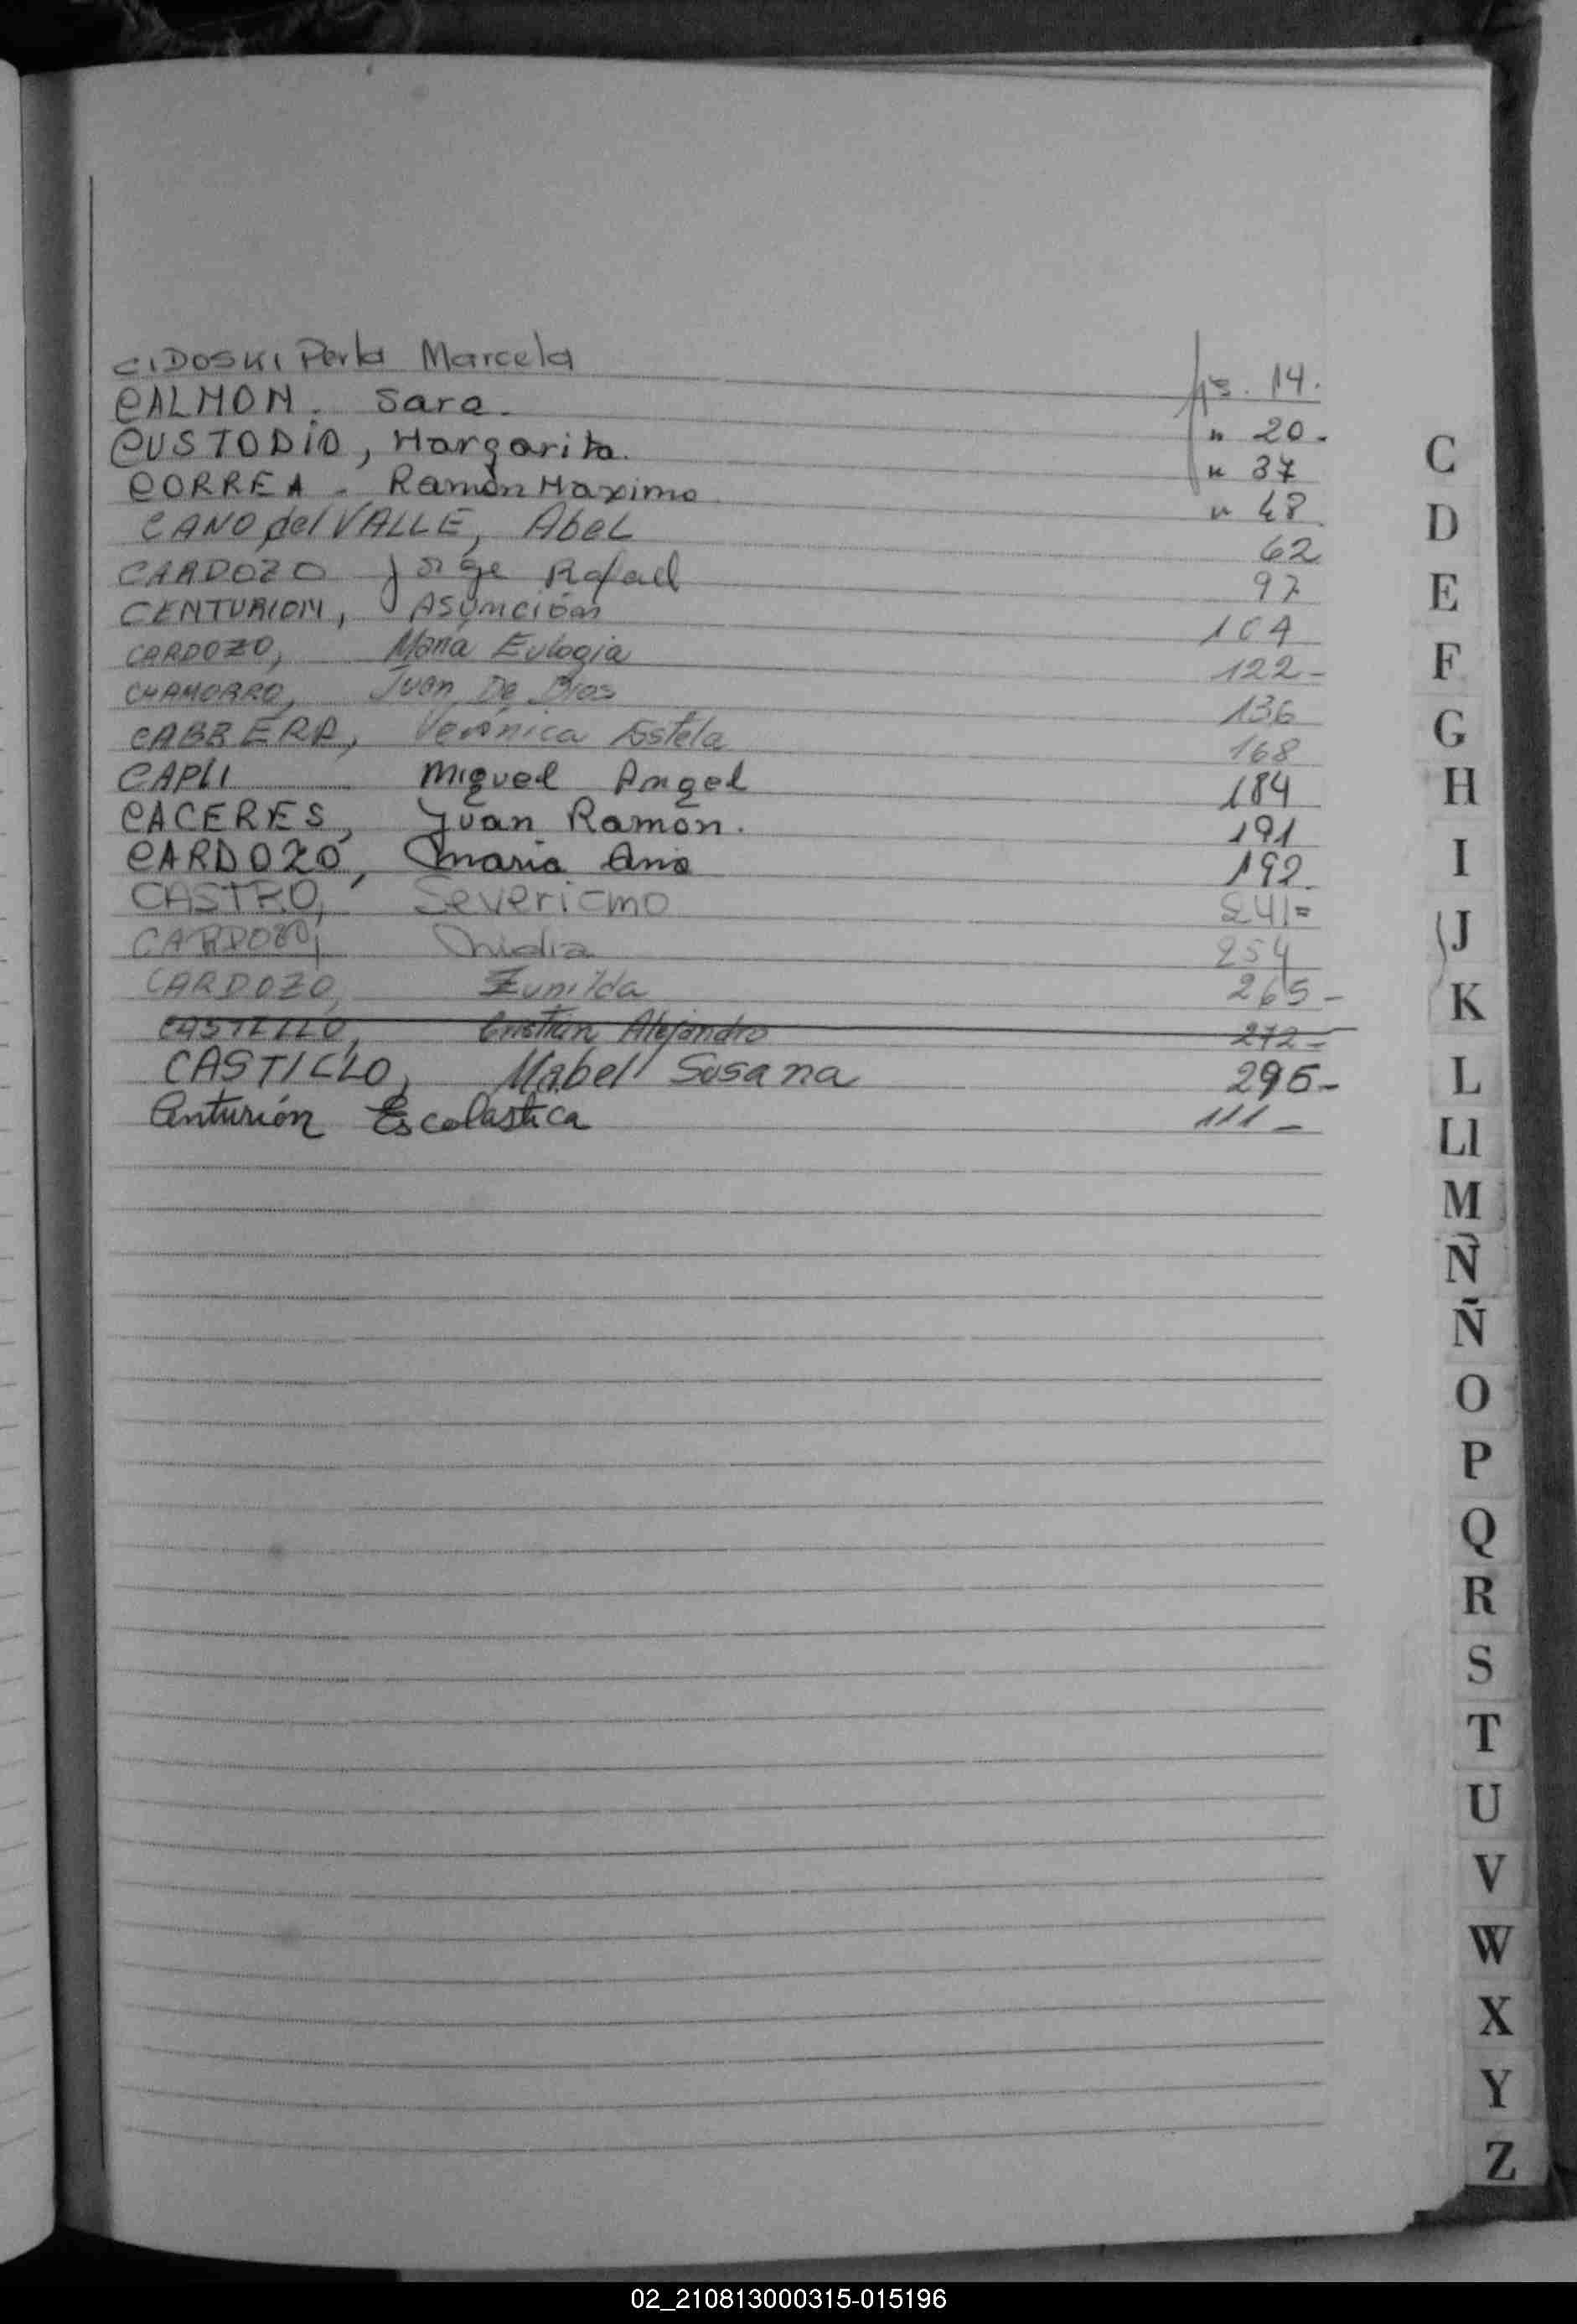 CIDOSKI Perla Marcela fjs. 14.
CALMON. Sara. " 20.
CUSTODIO, Margarita. " 37
CORREA - Ramón Maximo " 48
CANO del VALLE, Abel 62
CARDOZO Jorge Rafael 97
CENTURION, Asunción 104
CARDOZO, María Eulogia 122-
CHAMORRO, Juan De Dios 136
CABRERA, Verónica Estela 168
CAPLI Miguel Angel 184
CACERES, Juan Ramon. 191
CARDOZO, Maria Ana 192.
CASTRO, Severiano 241=
CARDOZO, Nidia 254
CARDOZO, Zunilda 265-
CASTILLO, Cristian Alejandro 272-
CASTILLO, Mabel Susana 295-
Centurión Escolastica 111-
C
D
E
F
G
H
I
J
K
L
Ll
M
N
Ñ
O
P
Q
R
S
T
U
V
W
X
Y
Z
02_210813000315-015196